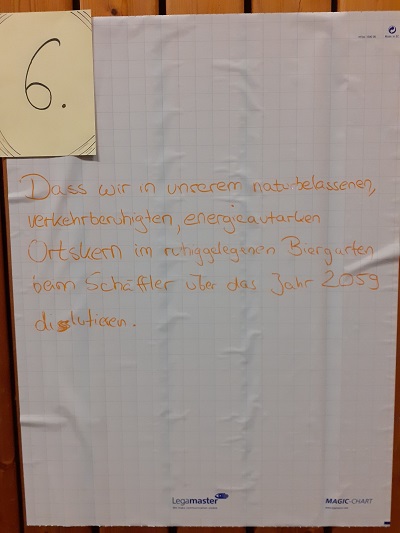 6.
Dass wir in unserem naturbelassenen,
verkehrberuhigten, energieautarken
Ortskern im ruhiggelegenen Biergarten
beim Schäffler über das Jahr 2059
diskutieren.
Legamaster
MAGIC-CHART